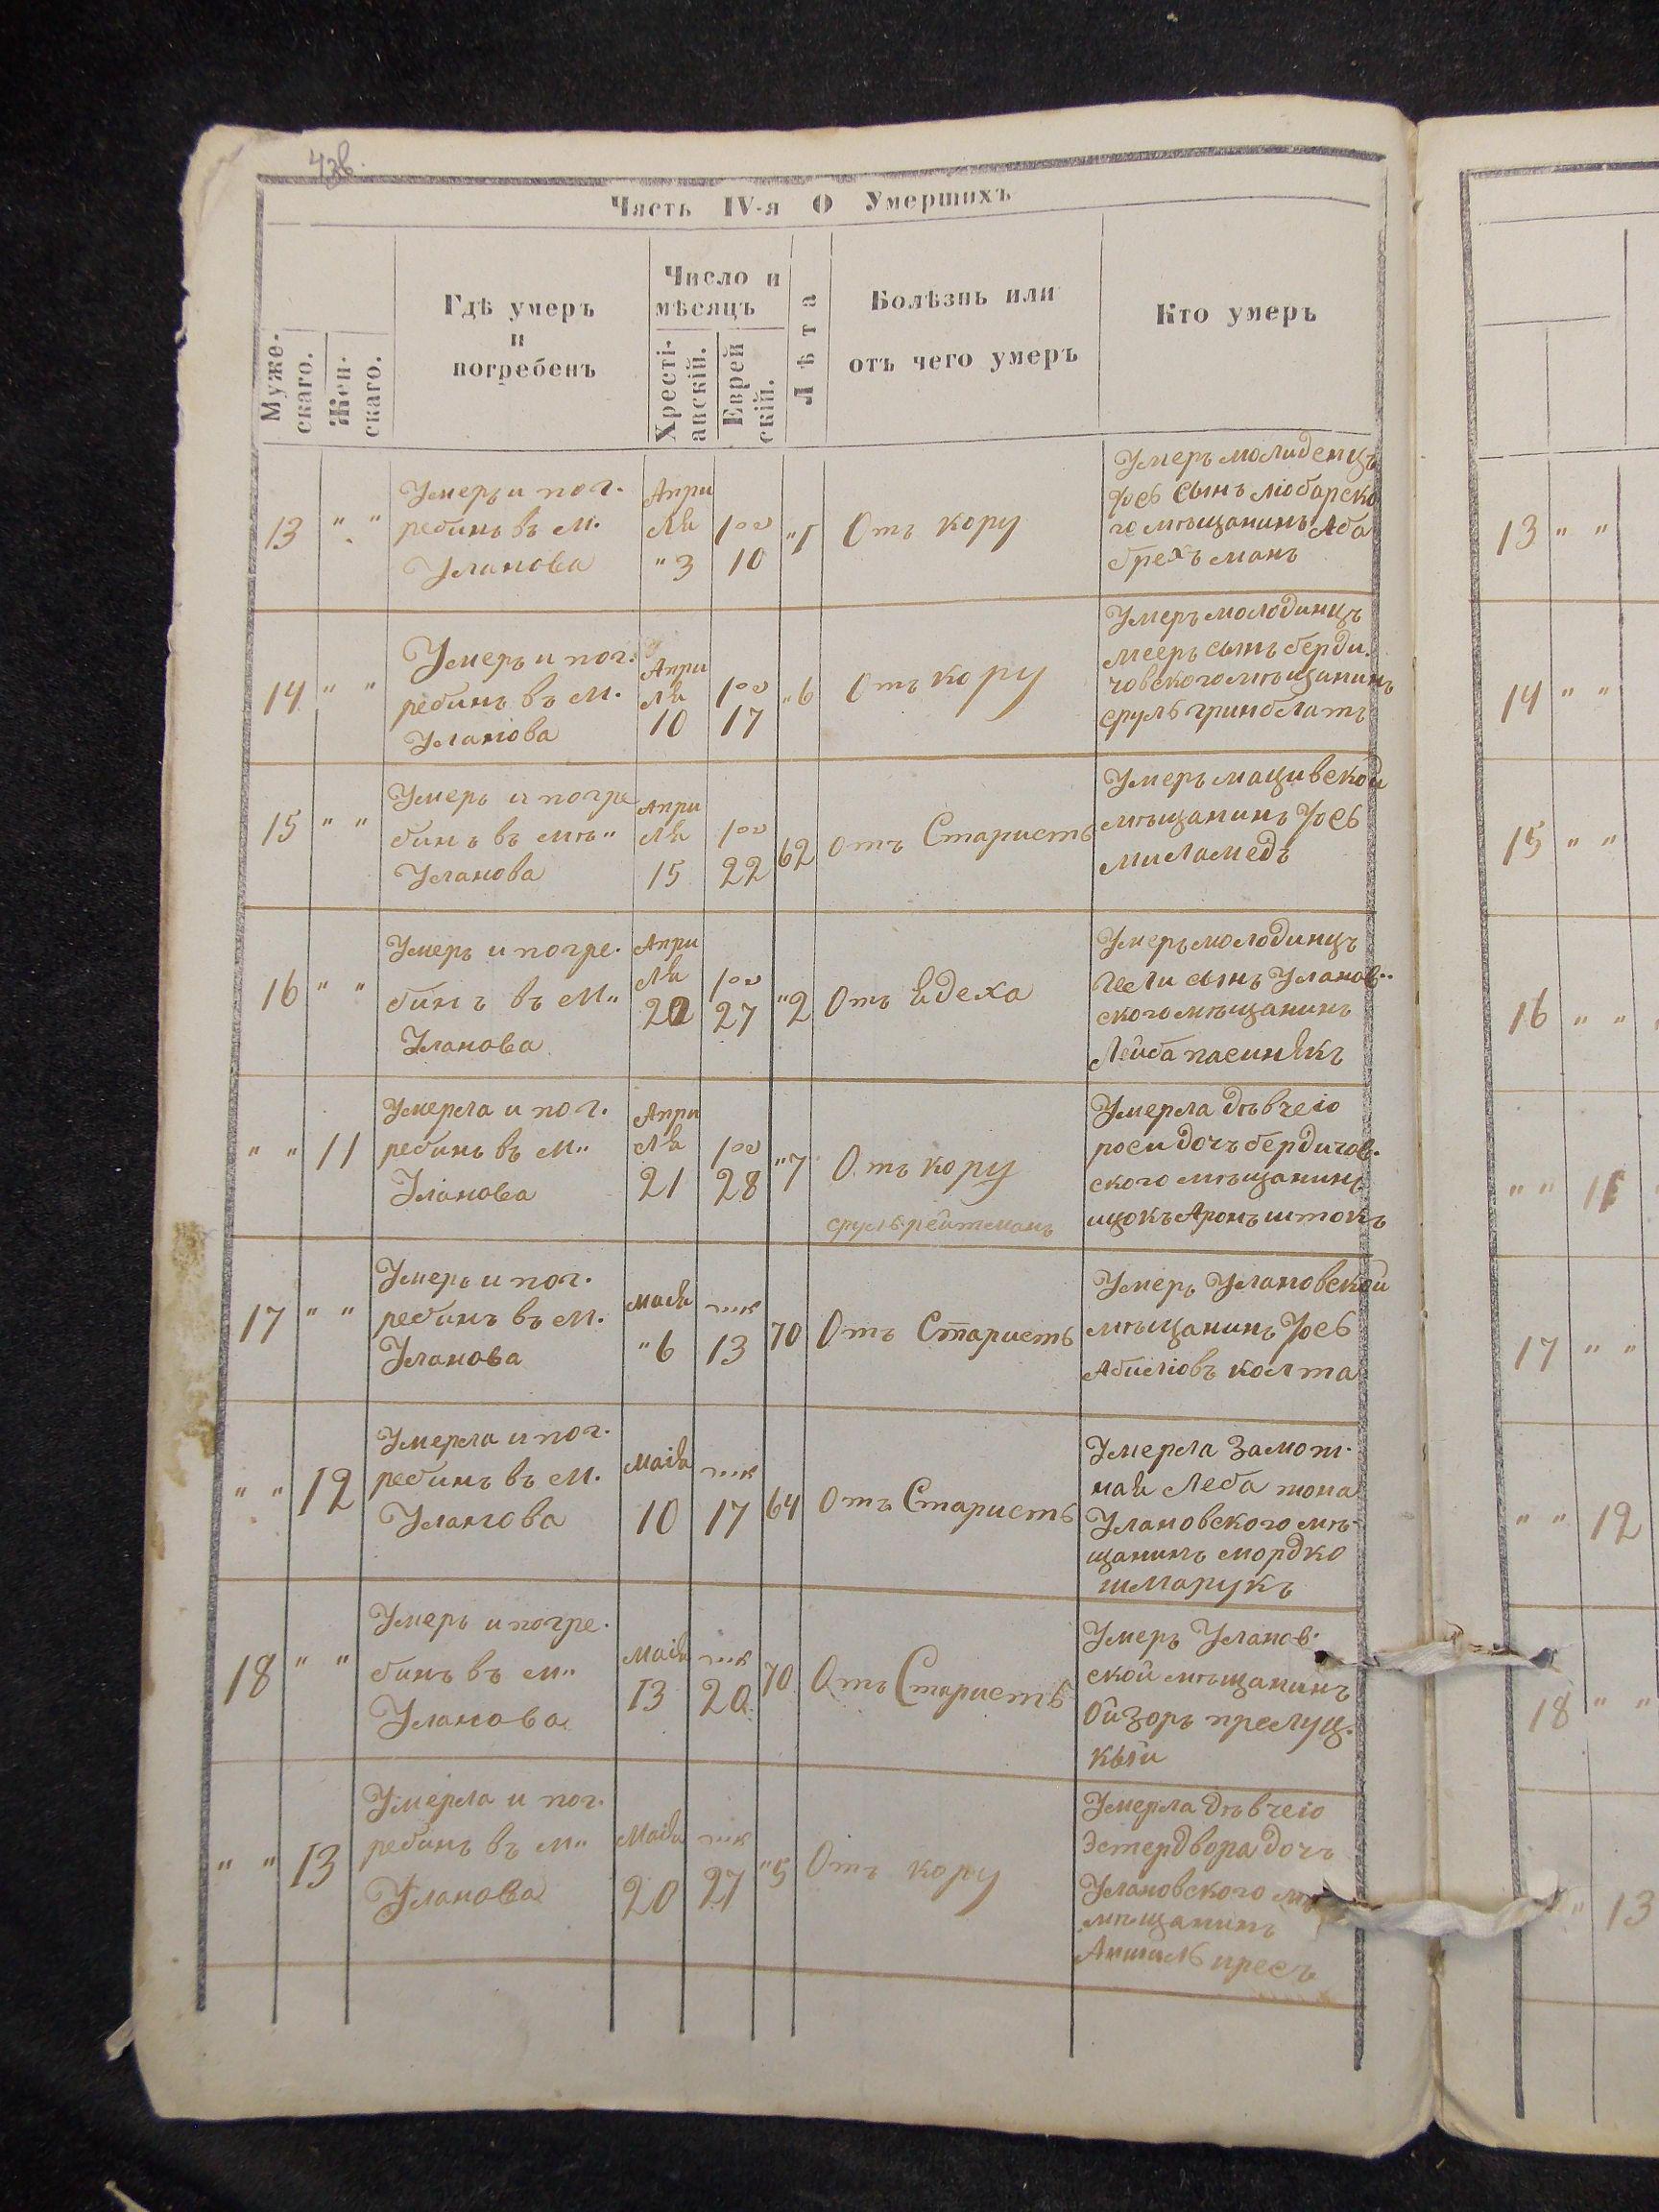 Часть IV-я О Умершихъ
Муже-
скаго.
Жен-
скаго.
Гдѣ умеръ
и
погребенъ
Число и
мѣсяцъ
Хресті-
анскій.
Еврей
скій.
Лѣта
Болѣзнь или
отъ чего умеръ
Кто умеръ
13 " "
Умеръ и пог.
ребинъ въ м.
Уланова
Апри
ля
" 3
10
" 1
Отъ кору
Умеръ молиденцъ
Іосъ сынъ любарско
го мѣщанинъ Аба
брехъманъ
13 " "
14 " "
Умеръ и пог.
ребинъ въ м.
Уланова
Апри
ля
10
17
" 6
Отъ кору
Умеръ молодинцъ
мееръ сынъ берди.
човского мѣщанинъ
сруль гринблатъ
14 " "
15 " "
Умеръ и погре
бинъ въ мѣ"
Уланова
Апри
ля
15
22
62
отъ Старистъ
Умеръ мацивской
мѣщанинъ Іосъ
миламедъ
15 " "
16 " "
Умеръ и погре.
бинъ въ м"
Уланова
Апри
ля
20
27
" 2
Отъ вдеха
Умеръ молодинцъ
сынъ Уланов"
ского мѣщанинъ
Лейба пасинякъ
16 " "
" " 11
Умерла и пог.
ребинъ въ м"
Уланова
Апри
ля
21
28
" 7
Отъ кору
сруль рейтманъ
Умерла дѣвчею
роси дочъ бердичов.
ского мѣщанинъ
ицокъ Аронъ штокъ
" " 11
17 " "
Умеръ и пог.
ребинъ въ м.
Уланова
Маія
" 6
13
70
Отъ Старистъ
Умеръ Улановской
мѣщанинъ Іосъ
Абиліовъ колта
17 " "
" " 12
Умерла и пог.
ребинъ въ м.
Уланова
Маія
10
17
64
отъ Старистъ
Умерла замот.
ная Леба тона
Улановского мѣ-
щанинъ мордко
шмарукъ
" " 12
18 " "
Умеръ и погре.
бинъ въ м"
Уланова
Маія
13
20
70
Отъ Старистъ
Умеръ Уланов.
ской мѣщанинъ
Ойзоръ преслуц.
кый
18 " "
" " 13
Умерла и пог.
ребинъ въ м"
Уланова
Маія
20
27
" 5
Отъ кору
Умерла дѣвчею
Эстердвора дочъ
Улановского
мѣщанинъ
Аншиль пресъ
" 13